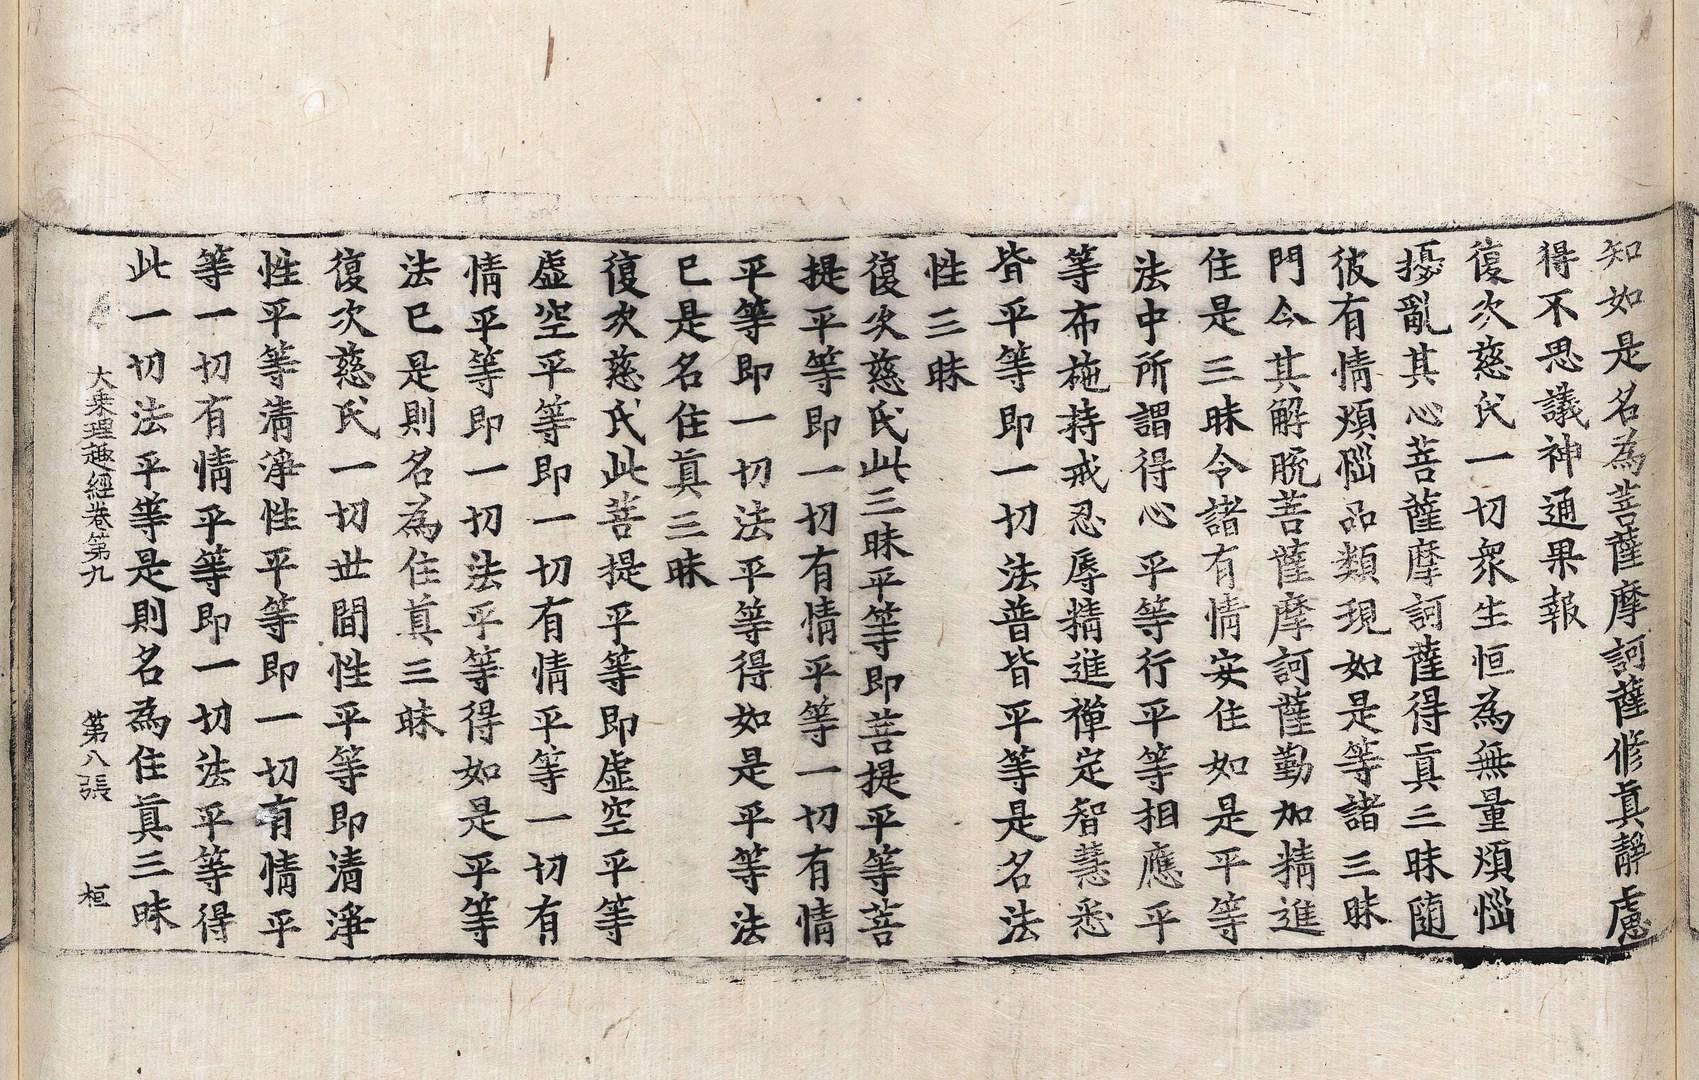 知如是名為菩薩摩訶薩修真靜慮
得不思議神通果報
復次慈氏一切衆生恒為無量煩惱
擾亂其心菩薩摩訶薩得真三昧隨
彼有情煩惱品類現如是等諸三昧
門令其解脫菩薩摩訶薩勤加精進
住是三昧令諸有情安住如是平等
法中所謂得心平等行平等相應平
等布施持戒忍辱精進禪定智慧悉
皆平等即一切法普皆平等是名法
性三昧
復次慈氏此三昧平等即菩提平等菩
提平等即一切有情平等一切有情
平等即一切法平等得如是平等法
已是名住真三昧
復次慈氏此菩提平等即虛空平等
虛空平等即一切有情平等一切有
情平等即一切法平等得如是平等
法已是則名為住真三昧
復次慈氏一切世間性平等即清淨
性平等清淨性平等即一切有情平
等一切有情平等即一切法平等得
此一切法平等是則名為住真三昧
大乘理趣經卷第九 第八張 桓